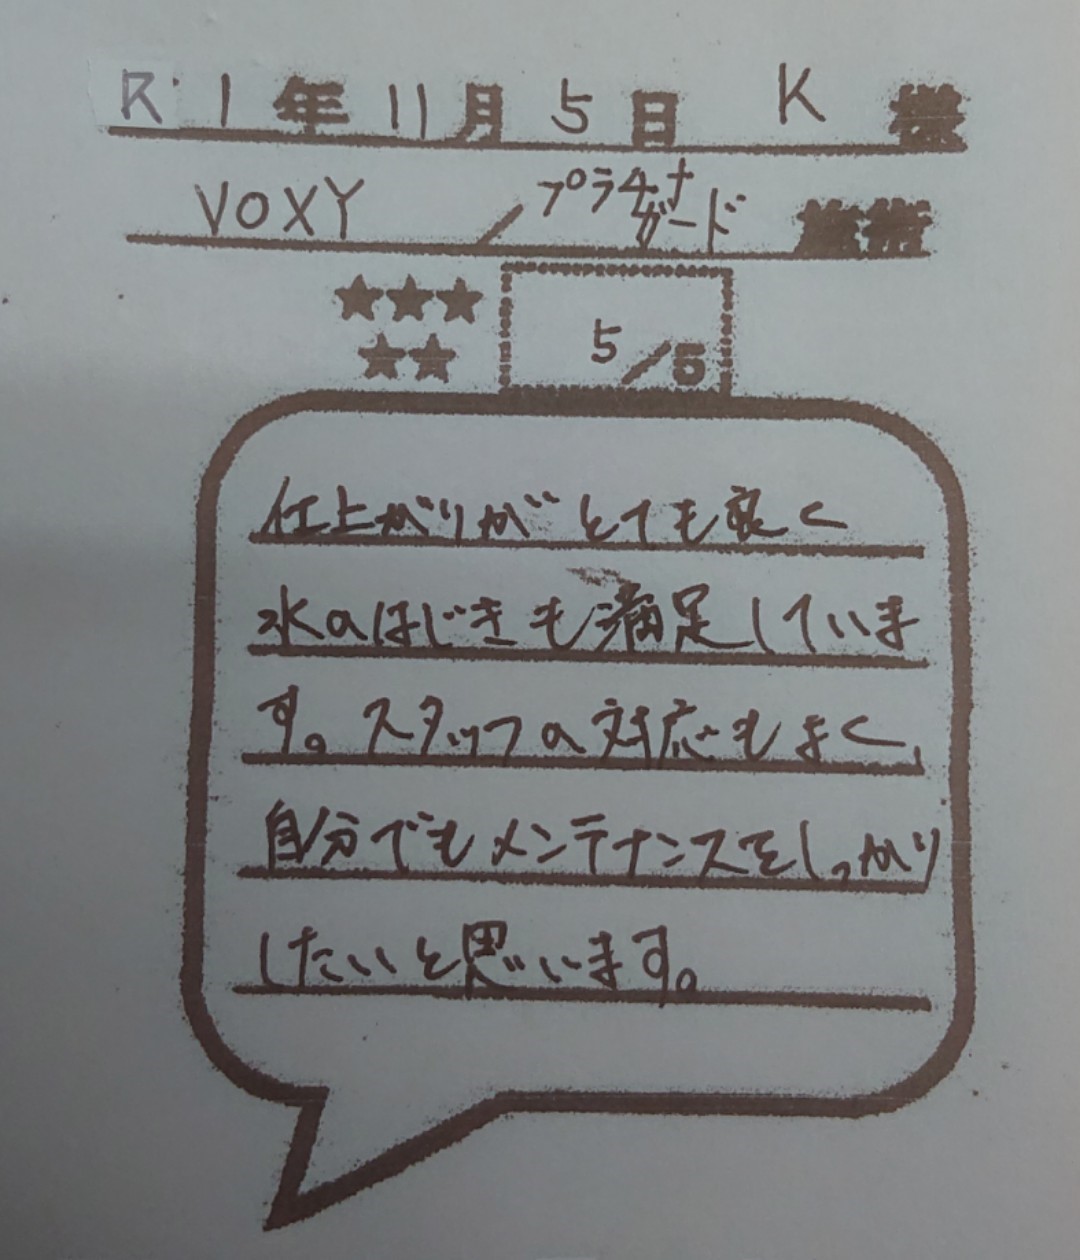 R1年11月5日 K様
VOXY / プラチナ
ガード 施術
★★★
★★ 5/5
仕上がりがとても良く
水のはじきも満足していま
す。スタッフの対応もよく、
自分でもメンテナンスをしっかり
したいと思います。